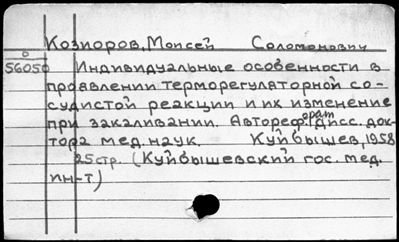 Козиоров, Моисей Соломонович
0
56050 Индивидуальные особенности в
проявлении терморегуляторной со-
судистой реакции и их изменение
при закаливании. Автореферат дисс. док-
тора мед. наук. Куйбышев, 1958
25 стр. (Куйбышевский гос. мед.
ин-т)